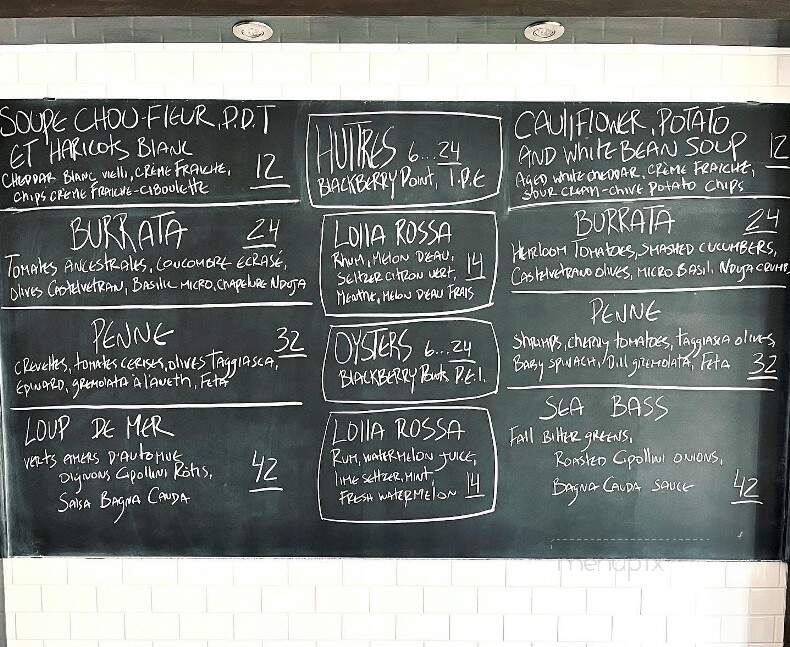 SOUPE CHOU-FLEUR, P.D.T
ET HARICOTS BLANC
CHEDDAR BLANC VIELLI, CRÈME FRAICHE,
CHIPS CRÈME FRAICHE-CIBOULETTE
12
BURRATA 24
TOMATES ANCESTRALES, COUCOMBRE ECRASÉ,
OLIVES CASTELVETRAN, BASILIC MICRO, CHAPELURE NDUJA
PENNE 32
CREVETTES, TOMATES CERISES, OLIVES TAGGIASCA,
EPINARD, GREMOLATA À L'ANETH, FETA
LOUP DE MER
VERTS AMERS D'AUTOMNE
OIGNONS CIPOLLINI RÔTIS,
SALSA BAGNA CAUDA
42
HUITRES 6...24
BLACKBERRY POINT, I.P.E
LOLLA ROSSA
RHUM, MELON D'EAU,
SELTZER CITRON VERT, 14
MENTHE, MELON D'EAU FRAIS
OYSTERS 6...24
BLACKBERRY POINTS P.E.I.
LOLLA ROSSA
RUM, WATERMELON JUICE,
LIME SELTZER, MINT,
FRESH WATERMELON 14
CAULIFLOWER, POTATO
AND WHITE BEAN SOUP 12
AGED WHITE CHEDDAR, CRÈME FRAICHE,
SOUR CREAM-CHIVE POTATO CHIPS
BURRATA 24
HEIRLOOM TOMATOES, SMASHED CUCUMBERS,
CASTELVETRANO OLIVES, MICRO BASIL, NDUJA CRUMB
PENNE
SHRIMPS, CHERRY TOMATOES, TAGGIASCA OLIVES
BABY SPINACH, DILL GREMOLATA, FETA 32
SEA BASS
FALL BITTER GREENS,
ROASTED CIPOLLINI ONIONS,
BAGNA CAUDA SAUCE 42
menupix